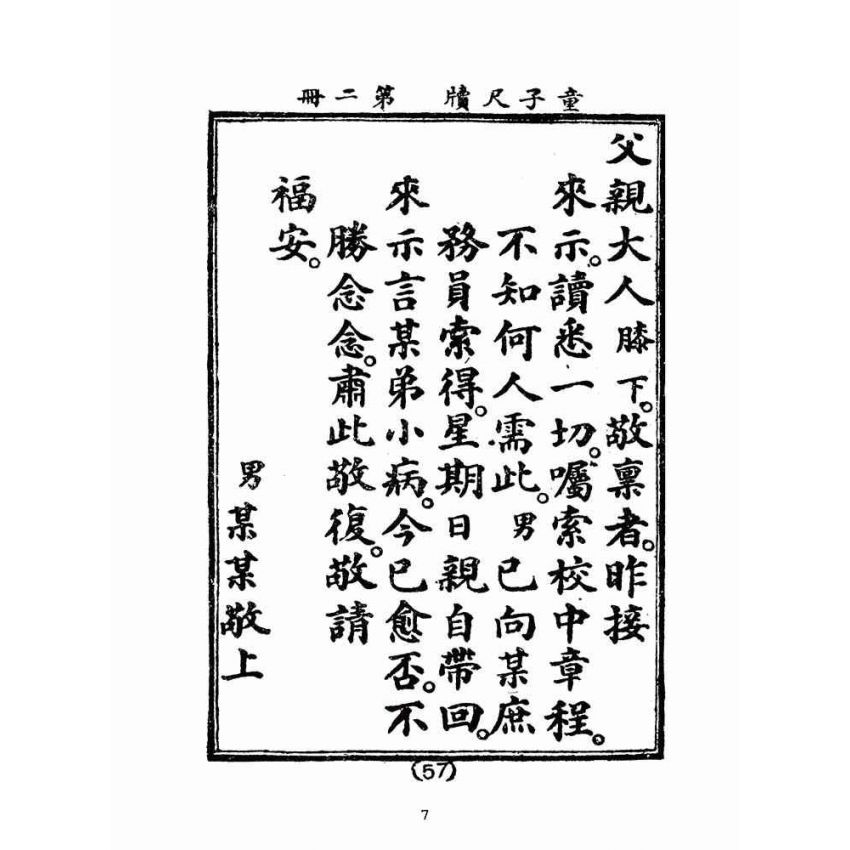 童子尺牘 第二冊
父親大人膝下。敬稟者。昨接
來示。讀悉一切。囑索校中章程。
不知何人需此。男已向某庶
務員索得。星期日親自帶回。
來示言某弟小病。今已愈否。不
勝念念。肅此敬復。敬請
福安。
男某某敬上
(57)
7